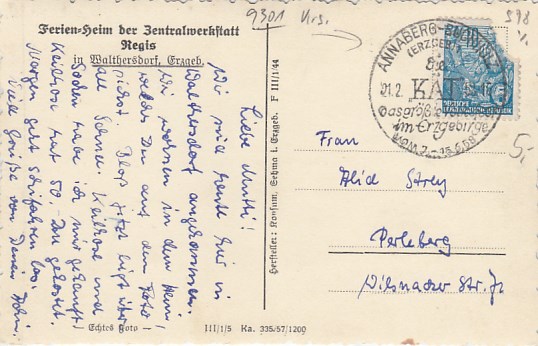 9301 Krs.
598
Ferien-Heim der Zentralwerkstatt
Regis
in Walthersdorf, Erzgeb.
Liebe Mutti!
Wir sind heute hier in
Walthersdorf angekommen.
Wir wohnen in dem Heim
welches Du auf dem Foto
siehst. Bloß jetzt liegt über-
all Schnee. Kathose und
Socken habe ich mir gekauft
hat 50.- gekostet.
Morgen geht Skifahren los.
Viele Grüße von Deinem
Echtes Foto
III/1/5 Ka. 335/57/1200
Hersteller: Konsum, Sehma i. Erzgeb. F III/1/44
ANNABERG-BUCHHOLZ
(ERZGEB)
21.2.
KÄT
Das größte
im Erzgebirge
VOM 7.-15.6.58
5,-
Frau
Strey
Perleberg
Wilsnacker Str.